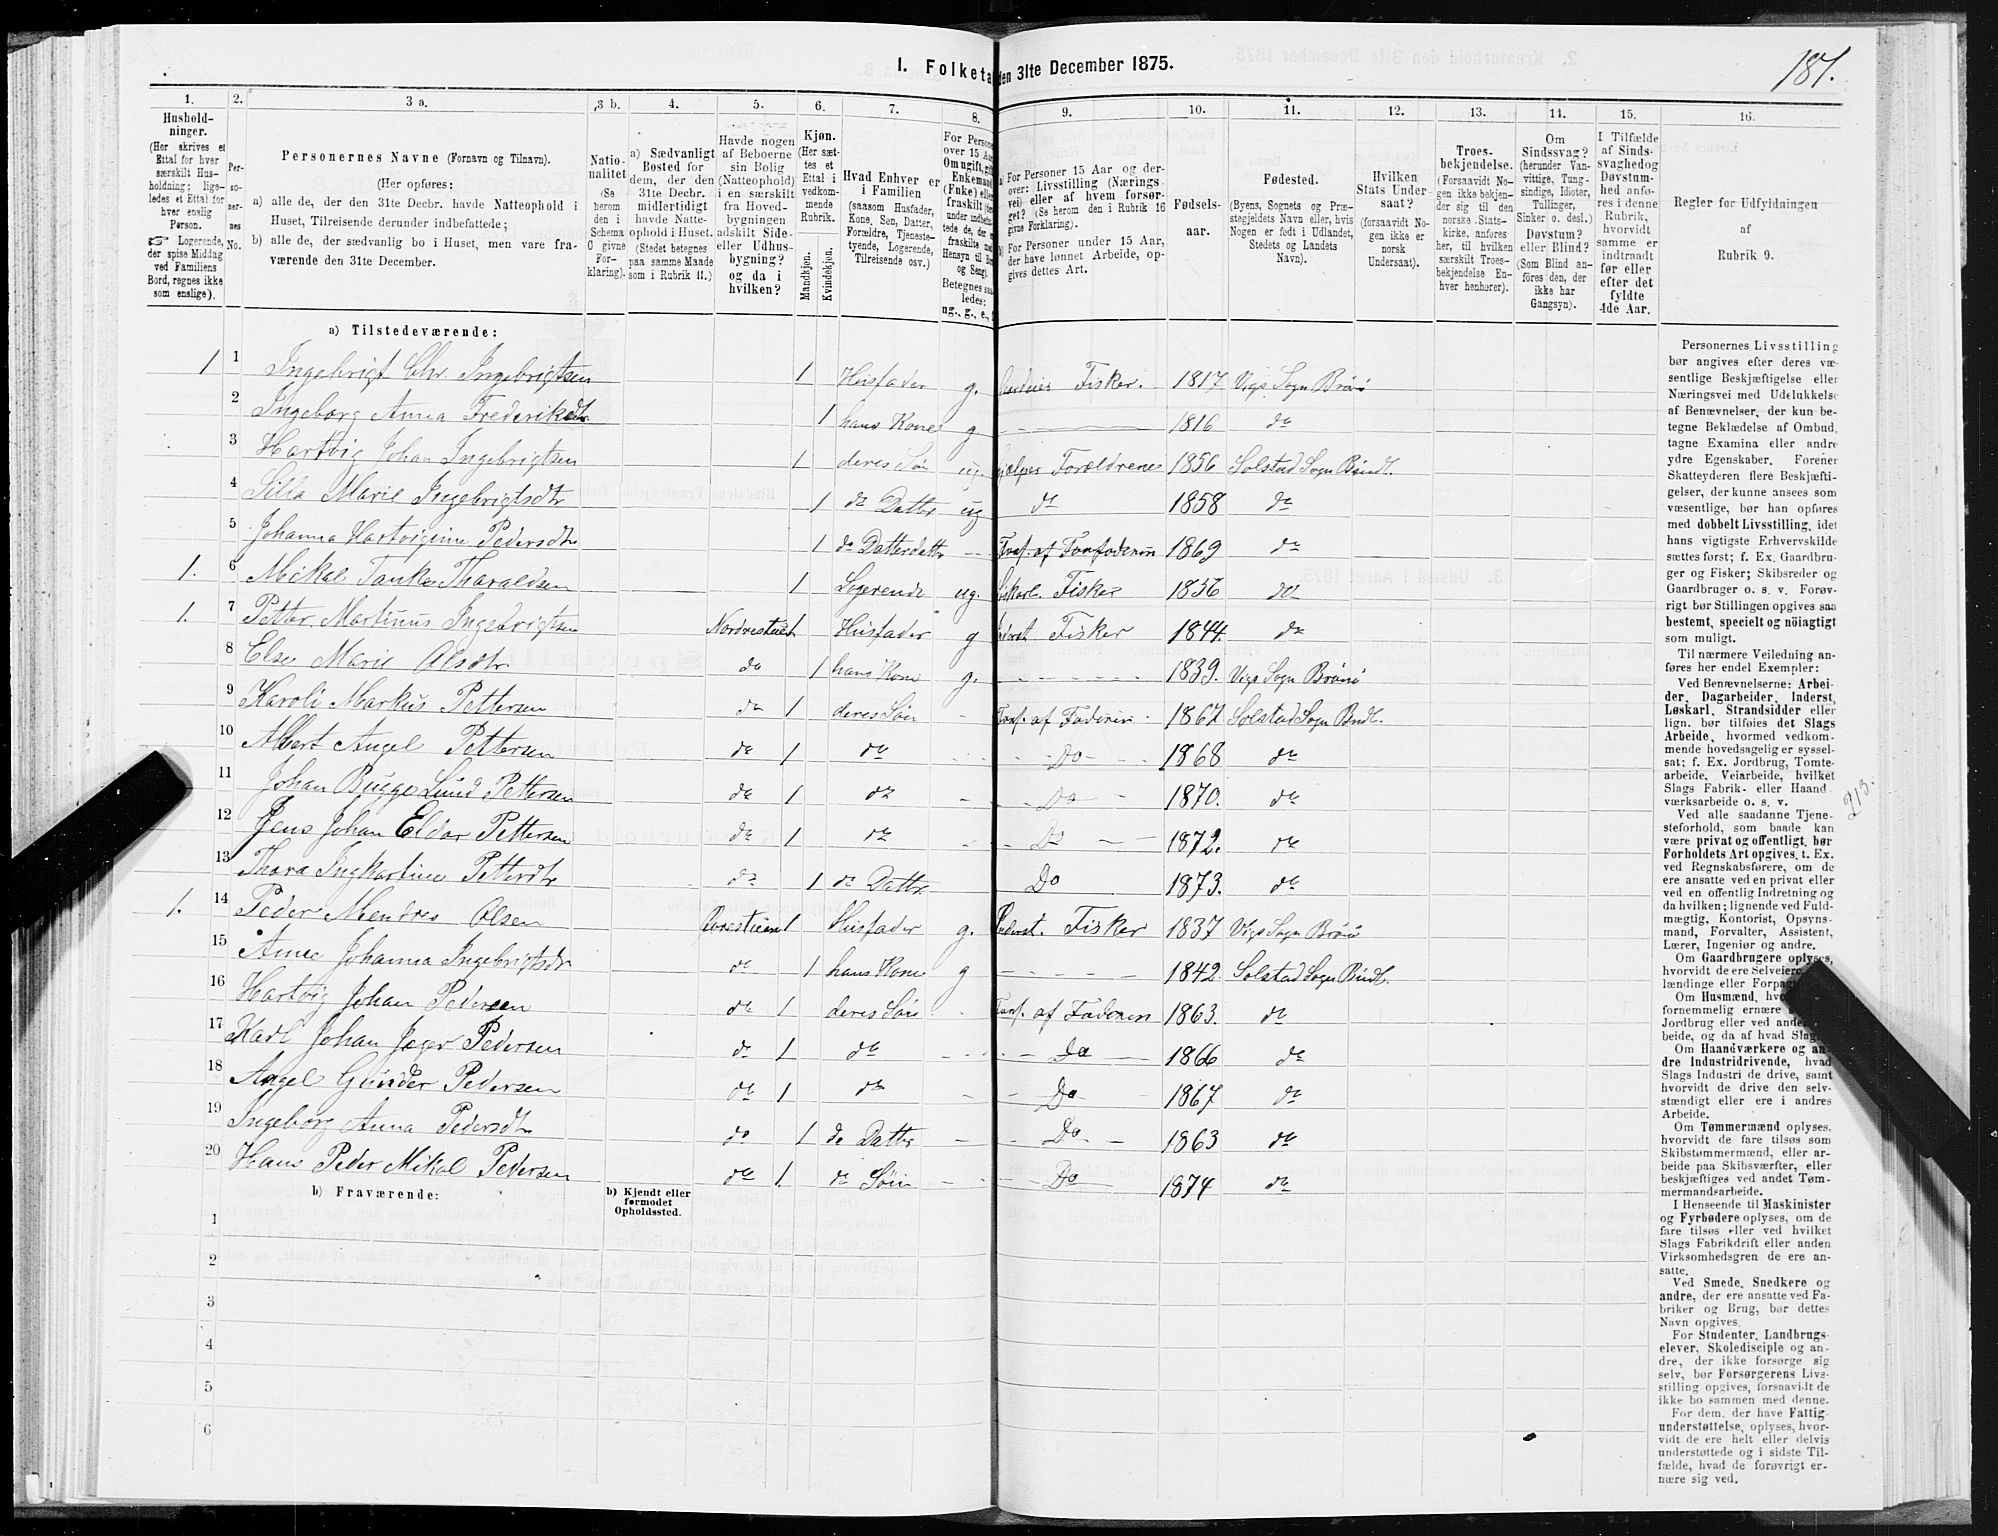 187.
1. Folketa den 31te December 1875.
1. 2. 3 a. 3 b. 4. 5. 6. 7. 8. 9. 10. 11. 12. 13. 14. 15. 16.
Hushold-
ninger.
(Her skrives et
Ettal for hver
særskilt Hus-
holdning; lige-
ledes et Ettal for
hver enslig
Person.
☞ Logerende,
der spise Middag
ved Familiens
Bord, regnes ikke
som enslige).
Per-
so-
ner-
nes
No.
Personernes Navne (Fornavn og Tilnavn).
(Her opføres:
a) alle de, der den 31te Decbr. havde Natteophold i
Huset, Tilreisende derunder indbefattede;
b) alle de, der sædvanlig bo i Huset, men vare fra-
værende den 31te December.
Natio-
nalitet
(Se
herom
den i
Schema
C givne
For-
klaring).
a) Sædvanligt
Bosted for
dem, der den
31te Decbr.
midlertidigt
havde Natte-
ophold i Huset.
(Stedet betegnes
paa samme Maade
som i Rubrik 11.)
Havde nogen
af Beboerne
sin Bolig
(Natteophold)
i en særskilt
fra Hoved-
bygningen
adskilt Side-
eller Udhus-
bygning?
og da i
hvilken?
Kjøn.
(Her sæt-
tes et
Ettal i
vedkom-
mende
Rubrik.
Mandkjøn.
Kvindekjøn.
Hvad Enhver er
i Familien
(saasom Husfader,
Kone, Søn, Datter,
Forældre, Tjeneste-
tyende, Logerende,
Tilreisende osv.)
For Persone
over 15 Aar
Om ugift, gift
Enkemand
(Enke) eller
fraskilt
Betegnes saa-
ledes:
ug., g., e.,
a) For Personer 15 Aar og der-
over: Livsstilling (Nærings-
vei) eller af hvem forsør-
get? (Se herom den i Rubrik 16
givne Forklaring).
b) For Personer under 15 Aar,
der have lønnet Arbeide, op-
gives dettes Art.
Fødsels-
aar.
Fødested.
(Byens, Sognets og Præ-
stegjeldets Navn eller, hvis
Nogen er født i Udlandet,
Stedets og Landets
Navn).
Hvilken
Stats Under-
saat?
(forsaavidt No-
gen ikke er
norsk
Undersaat).
Troes-
bekjendelse.
(Forsaavidt No-
gen ikke bekjen-
der sig til den
norske Stats-
kirke, anføres
her, til hvilken
særskilt Troes-
bekjendelse En-
hver henhører).
Om
Sindssvag?
(herunder Van-
vittige, Tung-
sindige, Idioter,
Tullinger,
Sinker o. desl.)
Døvstum?
eller Blind?
(Som Blind an-
føres den, der
ikke har
Gangsyn).
I Tilfælde
af Sinds-
svaghed og
Døvstum-
hed anfø-
res i denne
Rubrik,
hvorvidt
samme er
indtraadt
før eller
efter det
fyldte
4de Aar.
Regler for Udfyldningen
af
Rubrik 9.
a) Tilstedeværende:
1 1 Ingebrigt Chr. Ingebrigtsen 1 Husfader g. Fisker. 1817 Vigs Sogn Brønø
2 Ingeborg Anna Frederiksdtr 1 hans Kone g 1816 do
3 Hartvig Johan Ingebrigtsen 1 deres Søn ug. hjælper Forældrene 1856 Solstad Sogn Bindl.
4 Silla Marie Ingebrigtsdtr 1 do Datter ug do 1858 do
5 Johanna Hartvigine Pedersdtr 1 do Datterdattr Fors. af 1869 do
1. 6 Mikal Tanke Tharaldsen 1 Logerende ug. Løskarl. Fisker 1856 do
1. 7 Petter Martinus Ingebrigtsen Nordrestuen 1 Husfader g Inderst Fisker 1844. do
8 Else Marie Olsdtr do 1 hans Kone g. 1839. Vigs Sogn Brønø
9 Karoli Markus Pettersen do 1 deres Søn Fors. af Faderen 1867 Solstad Sogn Bindl.
10 Albert Angel Pettersen do 1 do Do 1868 do
11 Johan Bugge Lund Pettersen do 1 do Do 1870. do
12 Jens Johan Eldor Pettersen do 1 do Do 1872. do
13 Thora Ingkartine Pettersdtr do 1 do Dattr. Do 1873. do
1. 14 Peder Mendres Olsen 1 Husfader g. Inderst. Fisker 1837 Vigs Sogn Brønø
15 Anne Johanna Ingebrigtsdtr do 1 hans Kone g 1842. Solstad Sogn Bindl.
16 Hartvig Johan Pedersen do 1 deres Søn Fors. af Faderen 1863. do
17 Karl Johan Jæger Pedersen do 1 do Do 1866 do
18 Angel Gunder Pedersen do 1 do Do 1867 do
19 Ingeborg Anna Pedersdtr do 1 do Dattr Do 1863 do
20 Hans Peder Mikal Pedersen do 1. do Søn Do 1874 do
b) Fraværende:
b) Kjendt eller
formodet
Opholdssted.
1
2
3
4
5
6
Personernes Livsstilling
bør angives efter deres væ-
sentlige Beskjæftigelse eller
Næringsvei med Udelukkelse
af Benævnelser, der kun be-
tegne Beklædelse af Ombud,
tagne Examina eller andre
ydre Egenskaber. Forener
Skatteyderen flere Beskjæfti-
gelser, der kunne ansees som
væsentlige, bør han opføres
med dobbelt Livsstilling, idet
hans vigtigste Erhvervskilde
sættes først; f. Ex. Gaardbru-
ger og Fisker; Skibsreder og
Gaardbruger o. s. v. Forøv-
rigt bør Stillingen opgives saa
bestemt, specielt og nøiagtigt
som muligt.
Til nærmere Veiledning an-
føres her endel Exempler:
Ved Benævnelserne: Arbei-
der, Dagarbeider, Inderst,
Løskarl, Strandsidder eller
lign. bør tilføies det Slags
Arbeide, hvormed vedkom-
mende hovedsagelig er syssel-
sat; f. Ex. Jordbrug, Tomte-
arbeide, Veiarbeide, hvilket
Slags Fabrik- eller Haand-
værksarbeide o. s. v.
Ved alle saadanne Tjene-
steforhold, som baade kan
være privat og offentligt, bør
Forholdets Art opgives, t. Ex.
ved Regnskabsførere, om de
ere ansatte ved en privat eller
ved en offentlig Indretning og
da hvilken; lignende ved Fuld-
mægtig, Kontorist, Opsyns-
mand, Forvalter, Assistent,
Lærer, Ingeniør og andre.
Om Gaardbrugere oplyses,
hvorvidt de ere Selveiere,
lændinge eller Forpag
Om Husmænd, hvo
fornemmelig ernære
Jordbrug eller ved ande
beide, og da af hvad Slag
Om Haandværkere og an-
dre Industridrivende, hvad
Slags Industri de drive, samt
hvorvidt de drive den selv-
stændigt eller ere i andres
Arbeide.
Om Tømmermænd oplyses,
hvorvidt de fare tilsøs som
Skibstømmermænd, eller ar-
beide paa Skibsværfter, eller
beskjæftiges ved andet Tøm-
mermandsarbeide.
I Henseende til Maskinister
og Fyrbødere oplyses, om de
fare tilsøs eller ved hvilket
Slags Fabrikdrift eller anden
Virksomhedsgren de ere an-
satte.
Ved Smede, Snedkere og
andre, der ere ansatte ved Fa-
briker og Brug, bør dettes
Navn opgives.
For Studenter, Landbrugs-
elever, Skoledisciple og an-
dre, der ikke forsørge sig
selv, bør Forsørgerens Livs-
stilling opgives, forsaavidt de
ikke bo sammen med denne.
For dem, der have Fattig-
understøttelse, oplyses, hvor-
vidt de ere helt eller delvis
understøttede og i sidste Til-
fælde, hvad de forøvrigt er-
nære sig ved.
213.